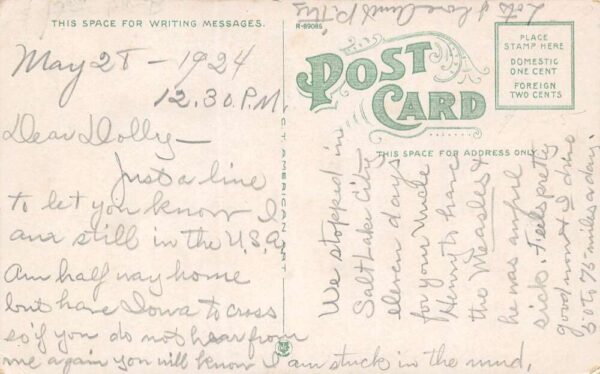 THIS SPACE FOR WRITING MESSAGES.
May 28 - 1924
12.30 P.M.
Dear Dolly -
Just a line
to let you know I
am still in the U.S.A.
Am half way home
but have Iowa to cross
so if you do not hear from
me again you will know I am stuck in the mud.
C.T. AMERICAN ART
R-89085
POST CARD
PLACE
STAMP HERE
DOMESTIC
ONE CENT
FOREIGN
TWO CENTS
THIS SPACE FOR ADDRESS ONLY
We stopped in
Salt Lake City
eleven days
for your Uncle
Henry to have
the Measles &
he was awful
sick. Feels pretty
good now & I drive
50 to 75 miles a day.
Lots of love Aunt